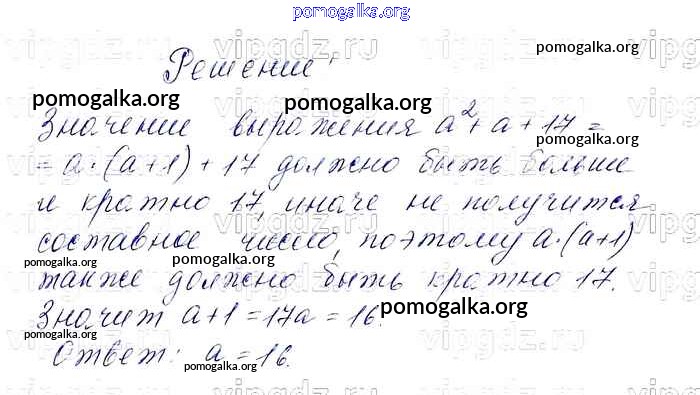 pomogalka.org
vipgdz.ru vipgdz.ru vipgdz.ru vip
pomogalka.org
Решение:
pomogalka.org pomogalka.org
Значение выражения a²+ a + 17 =
pomogalka.org
= a·(a+1) + 17 должно быть больше
и кратно 17, иначе не получится
составное число, поэтому a·(a+1)
pomogalka.org pomogalka.org
также должно быть кратно 17.
Значит a+1 = 17a = 16.
pomogalka.org
pomogalka.org
Ответ: a = 16.
pomogalka.org
pomogalka.org